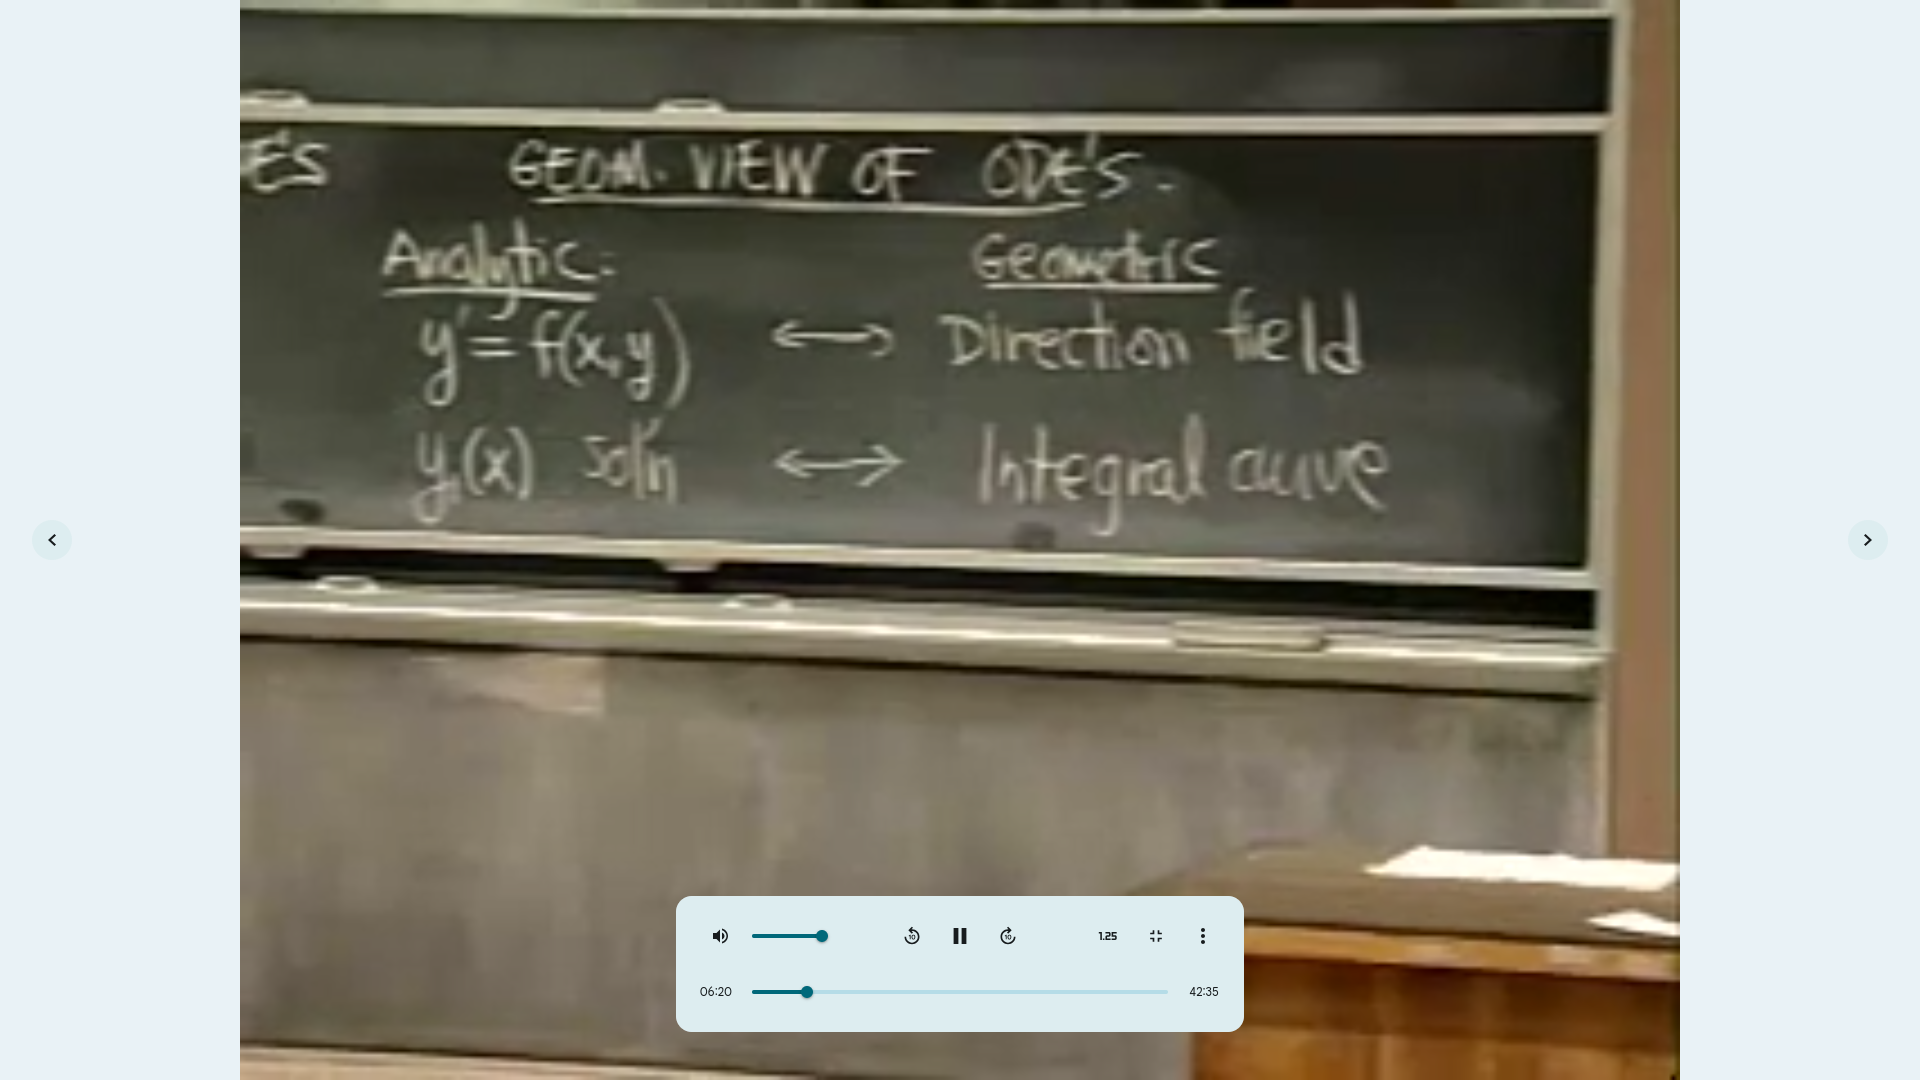 E'S
GEOM. VIEW OF ODE'S.
Analytic: Geometric
y' = f(x,y) ↔ Direction field
y₁(x) sol'n ↔ Integral curve
10 10 1.25
06:20 42:35